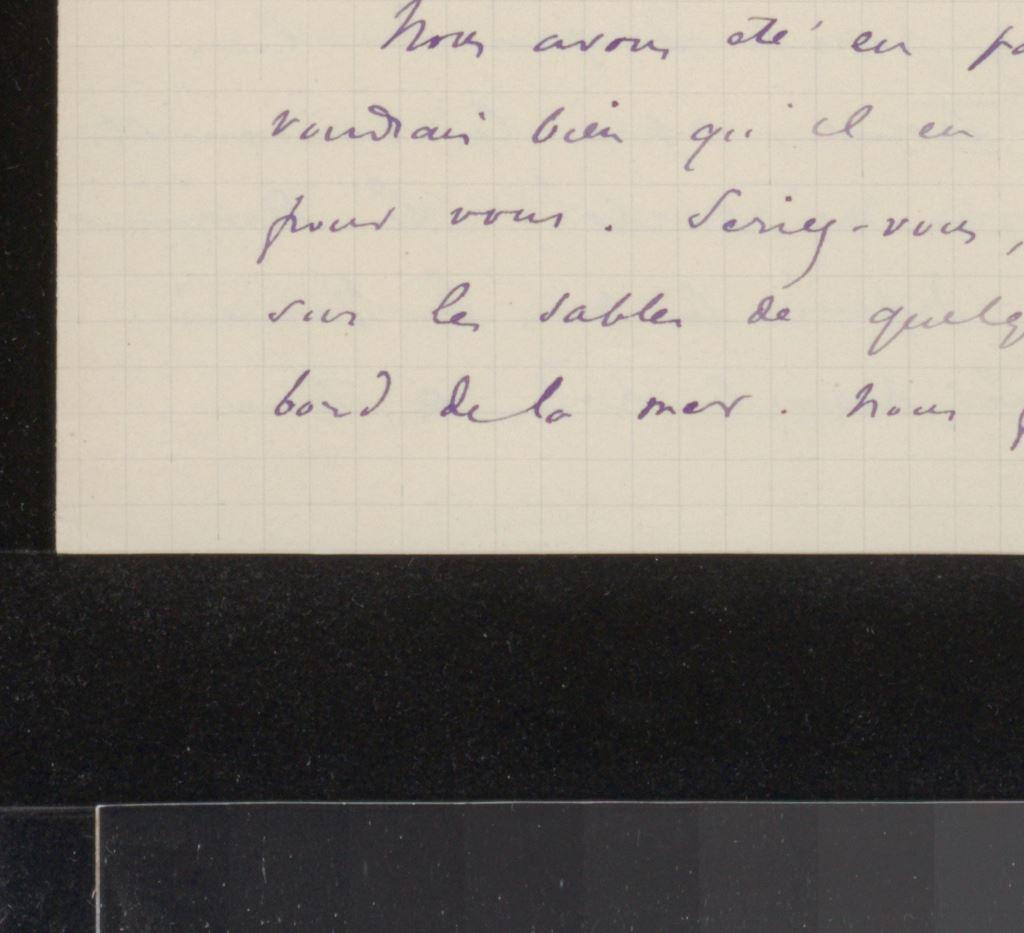 Nous avons été en
voudrais bien qu'il en
pour vous. Seriez-vous,
sur les sables de quelq
bord de la mer. Nous